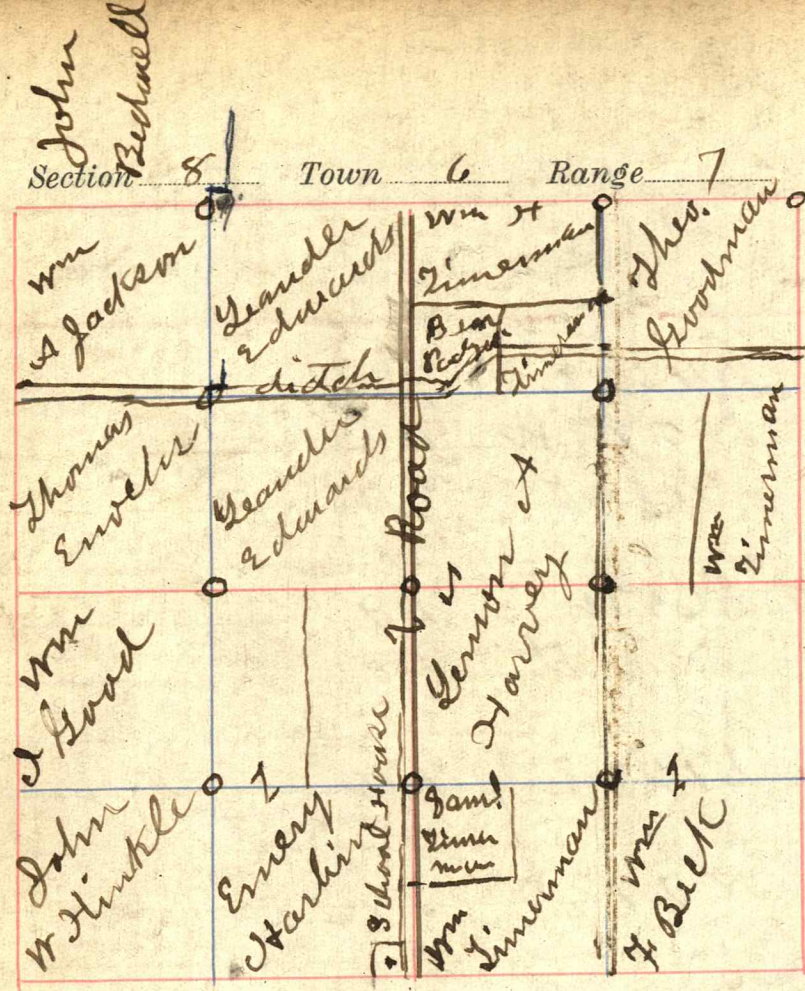 John
Bedwell
Section 8 Town 6 Range 7
Wm
A Jackson
Leander
Edwards
Wm H
Zimerman
Theo.
Goodman
Ben
Zimerman
ditch
Thomas
Leander
Edwards
Road
Lemon A
Harvey
Wm
Zimerman
Wm
Good
School House
John
W Hinkle
Emery
Harlin
Saml
Zimer
man
Wm
Zimerman
Wm
F. Beck